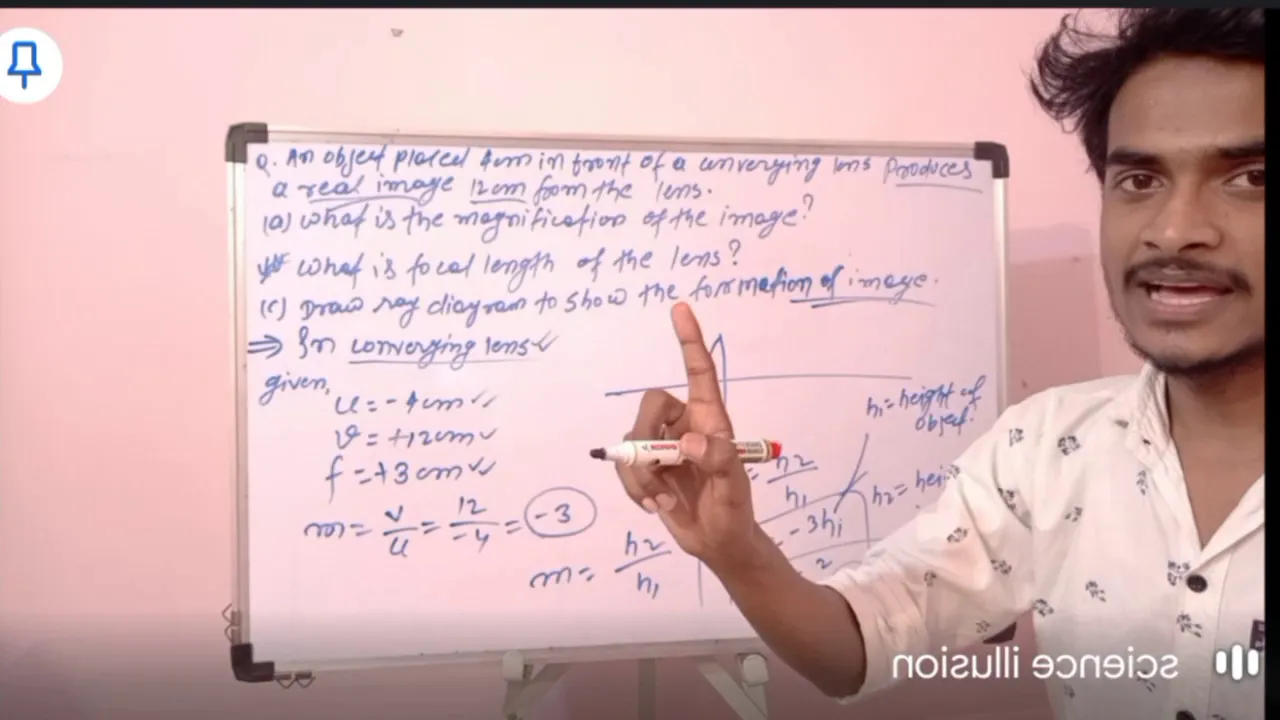 Q. An object placed 4cm in front of a converying lens Produces
a real image 12cm from the lens.
(a) What is the magnification of the image?
What is focal length of the lens?
(c) Draw ray diagram to show the formation of image.
⇒ In converying lens ✓
given,
u = -4cm ✓
v = +12cm ✓
f = +3cm ✓
m = v/u = 12/-4 = -3
m = h2/h1
= h2/h1
- 3h1
2
h1 = height of
object
h2 =
science illusion